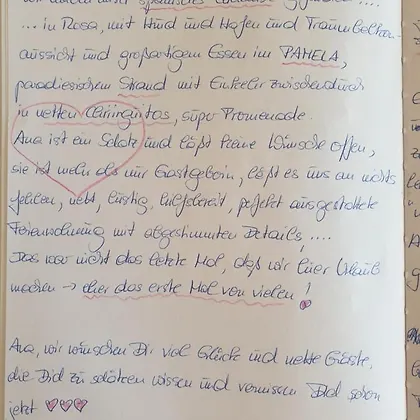 ... in Rosa, mit Hund und Hafen und Traumbalkon-
aussicht und großartigem Essen im PAMELA,
paradiesischem Strand mit Einkehr zwischendurch
in netten Chiringuitos, super Promenade.
Ana ist ein Schatz und läßt keine Wünsche offen,
sie ist mehr als nur Gastgeberin, läßt es uns an nichts
fehlen, nett, lustig, hilfsbereit, perfekt ausgestattete
Ferienwohnung mit abgestimmten Details, ....
Das war nicht das letzte Mal, daß wir hier Urlaub
machen → eher das erste Mal von vielen !
Ana, wir wünschen Dir viel Glück und nette Gäste,
die Dich zu schätzen wissen und vermissen Dich schon
jetzt ♥♥♥